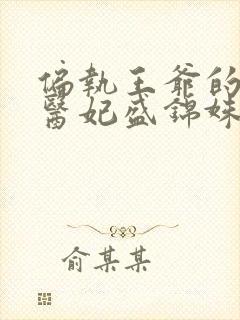 偏執王爺的
醫妃盛錦姝
俞某某